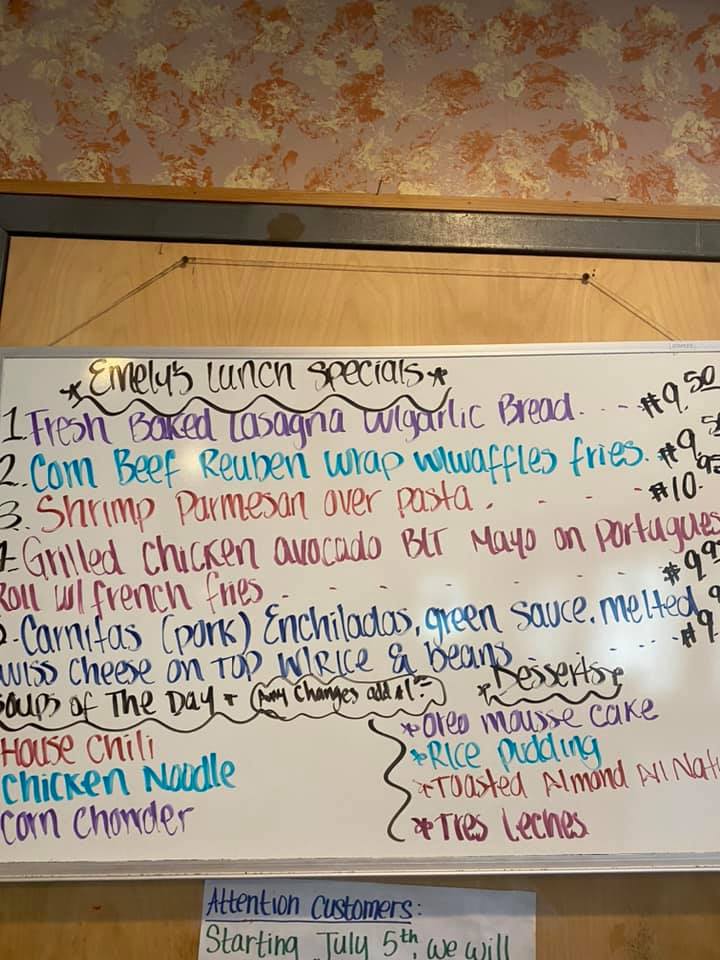 *Emely's Lunch Specials*
1. Fresh Baked Lasagna w/garlic Bread. - - - $9.50
2. Corn Beef Reuben wrap w/waffles fries. $9.5
3. Shrimp Parmesan over pasta . - - - $10.95
Grilled chicken avocado BLT Mayo on Portugues
Roll w/ french fries - - - - - $9.9
- Carnitas (pork) Enchiladas, green sauce, melted
wiss cheese on TOP W/Rice & beans - - - - $9.9
oups of The Day + (Any Changes add $1.00)
House Chili
Chicken Noodle
Corn Chowder
*Desserts*
*Oreo mousse cake
*Rice pudding
*Toasted Almond All Nat
*Tres Leches
Attention Customers:
Starting July 5th, we will